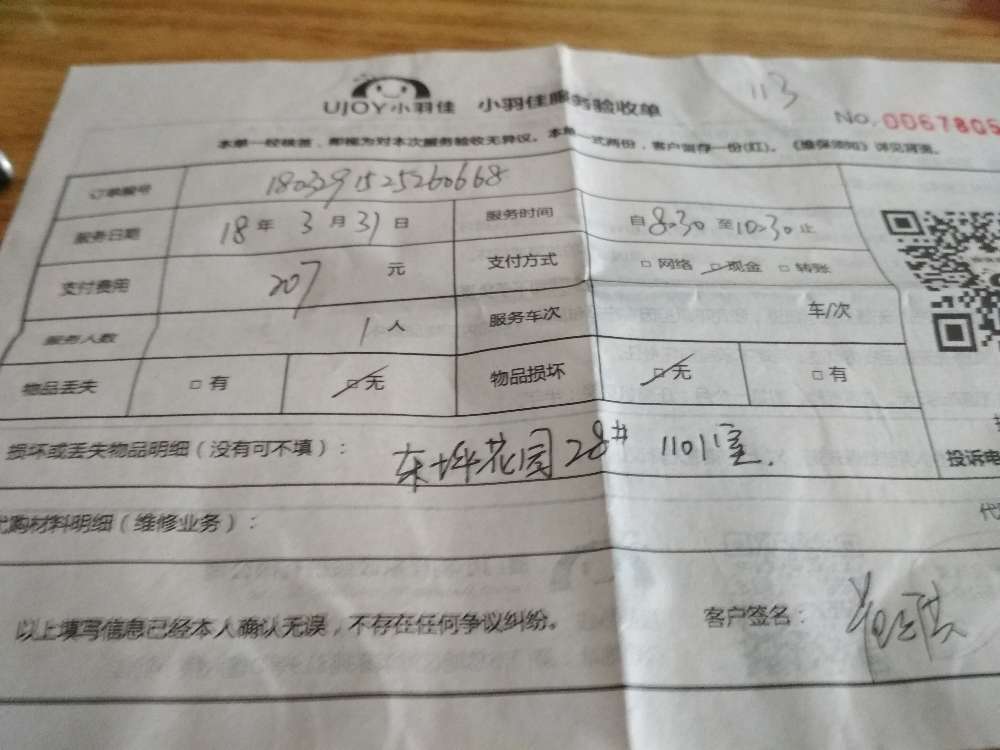 113
UJOY小羽佳 小羽佳服务验收单
No.0067805
本单一经核签，即视为对本次服务验收无异议。本单一式两份，客户留存一份(红)。《维保须知》详见背面。
订单编号 1803291525260668
服务日期 18年3月31日 服务时间 自8:30至10:30止
支付费用 207元 支付方式 □网络 □现金 □转账
服务人数 1人 服务车次 车/次
物品丢失 □有 □无 物品损坏 □无 □有
损坏或丢失物品明细（没有可不填）： 东坪花园28# 1101室.
投诉电
代购材料明细（维修业务）：
以上填写信息已经本人确认无误，不存在任何争议纠纷。 客户签名：